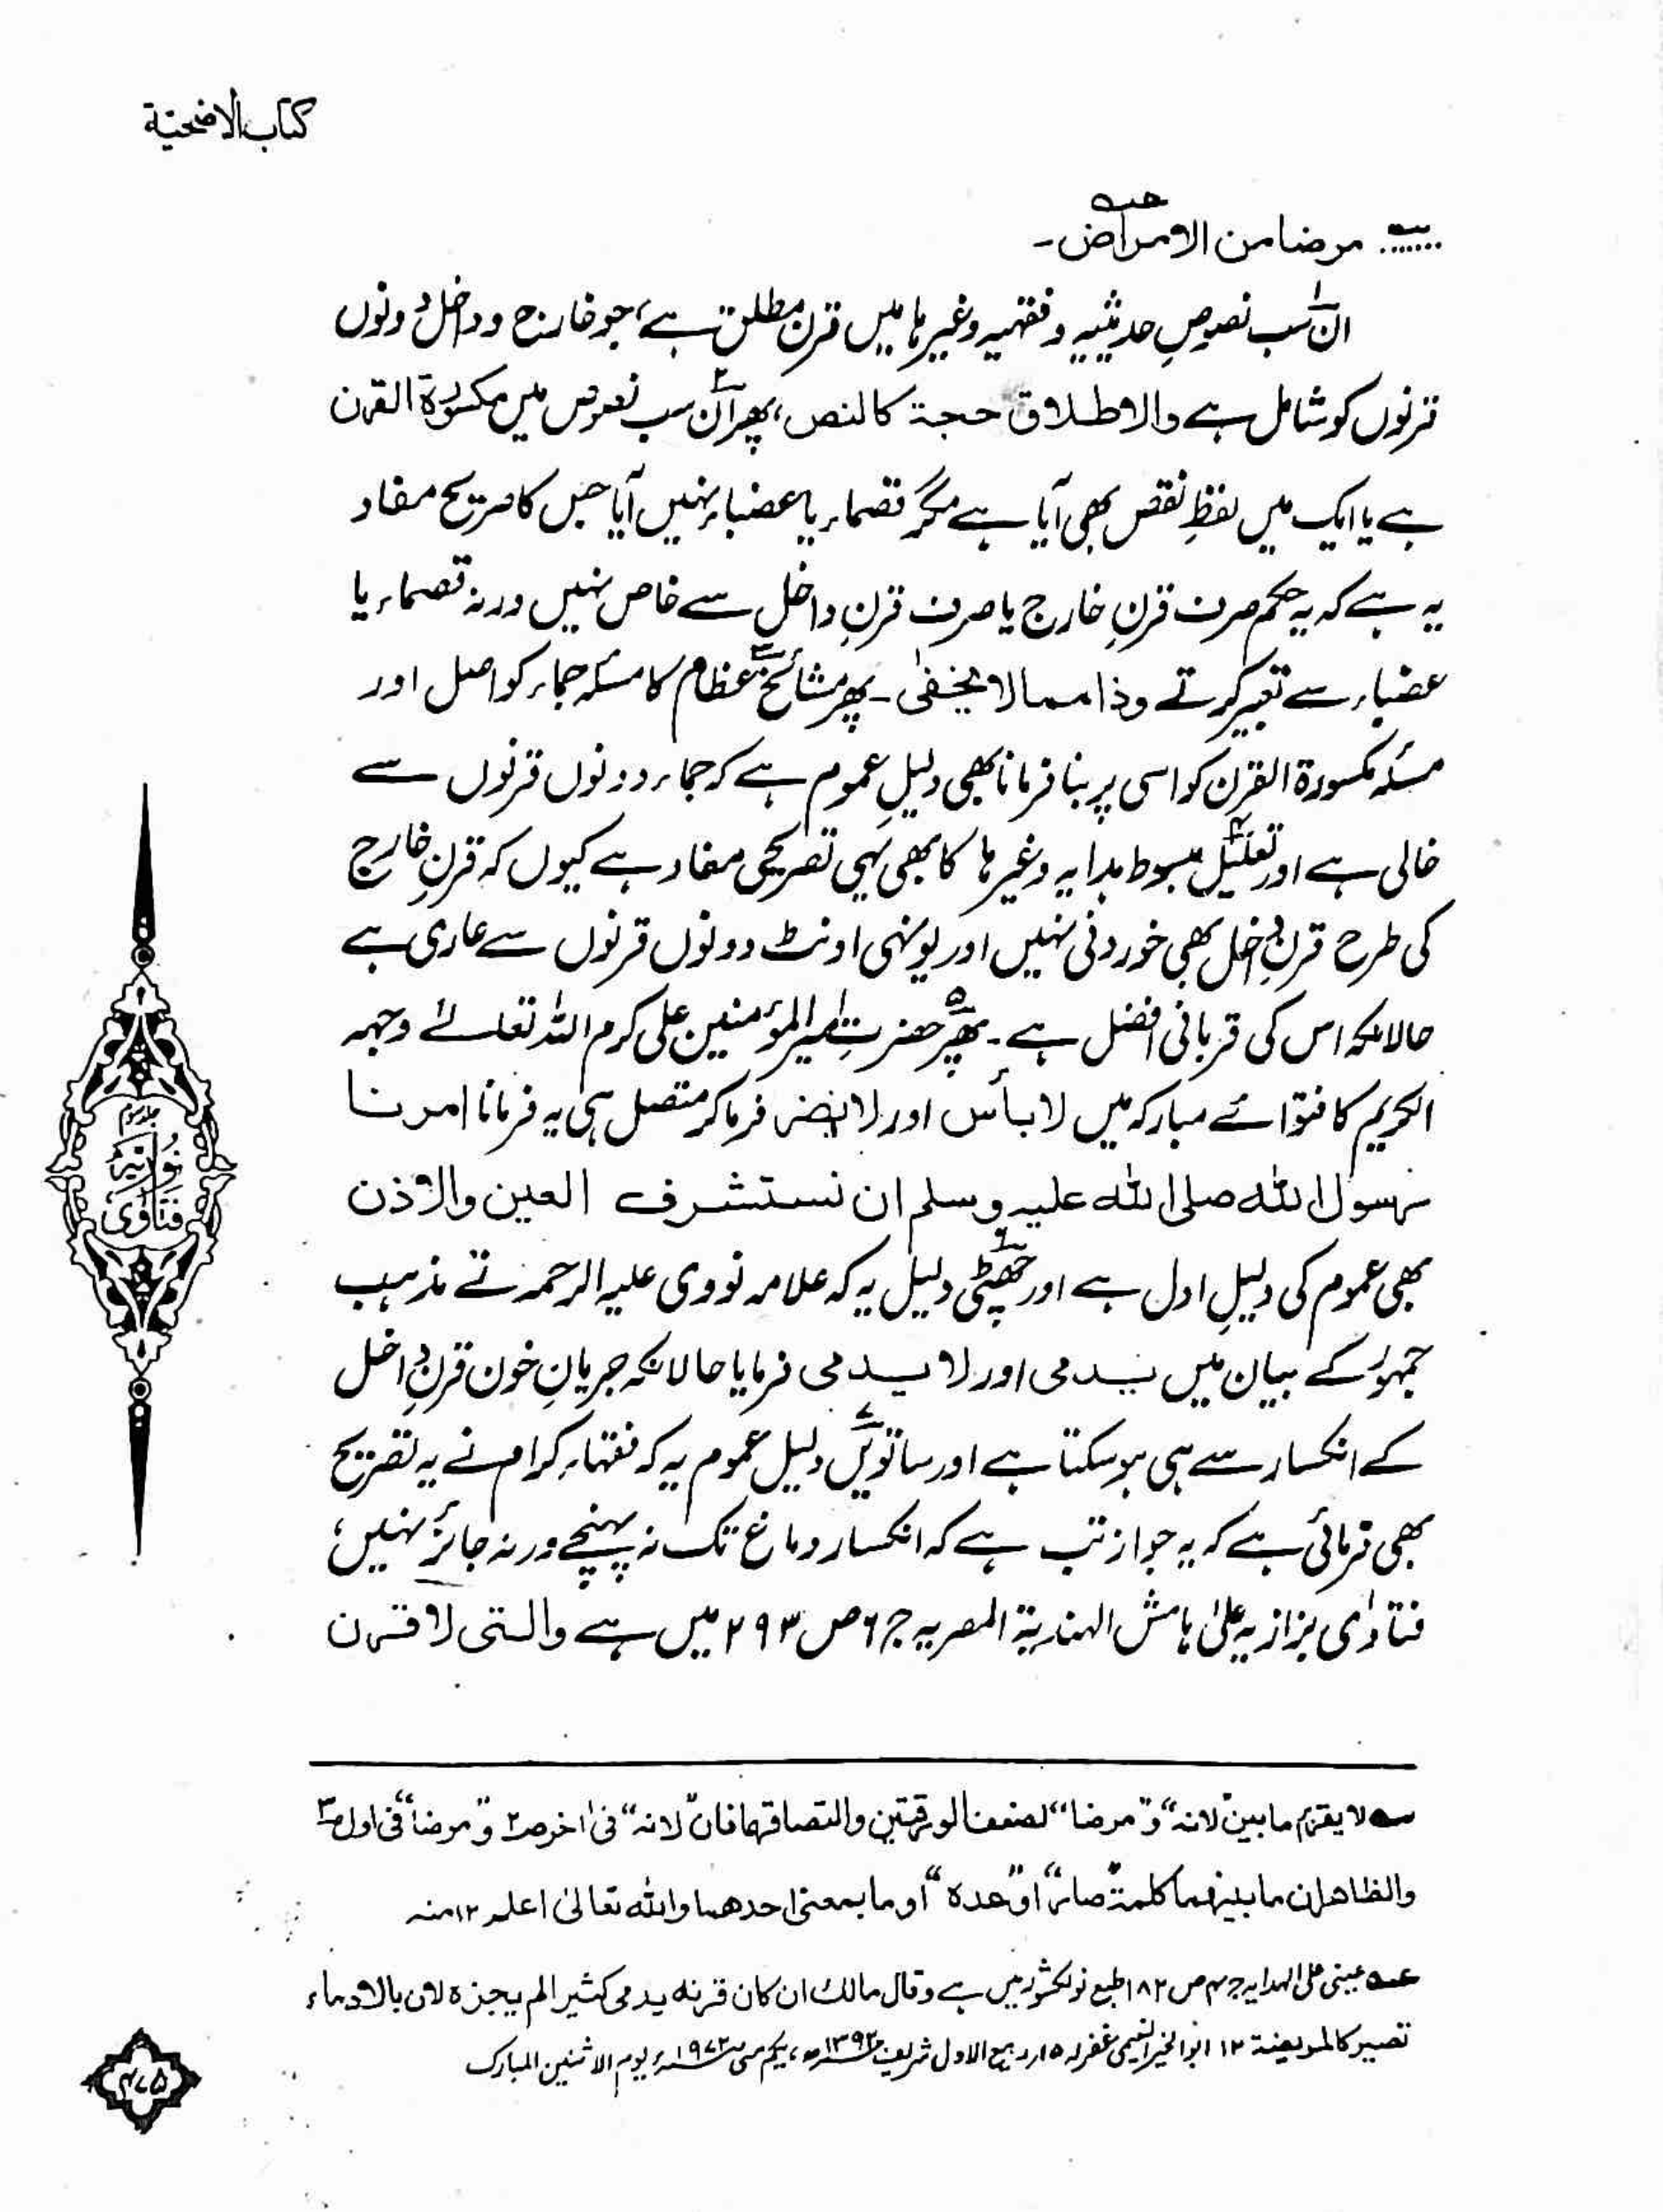 کتاب الاضحیة
....... مرضا من الامراض۔
ان سب نصوصِ حدیثیہ و فقہیہ وغیرہا میں قرن مطلق ہے، جو خارج و داخل دونوں
قرنوں کو شامل ہے والاطلاق حجۃ کالنص، پھر ان سب نصوص میں مکسورۃ القرن
ہے یا ایک میں لفظِ نقص بھی آیا ہے مگر قصماء یا عضباء نہیں آیا جس کا صریح مفاد
یہ ہے کہ یہ حکم صرف قرنِ خارج یا صرف قرنِ داخل سے خاص نہیں ورنہ قصماء یا
عضباء سے تعبیر کرتے وذا مما لا یخفیٰ۔ پھر مشائخ عظام کا مسئلہ جماء کو اصل اور
مسئلہ مکسورۃ القرن کو اسی پر بنا فرمانا بھی دلیلِ عموم ہے کہ جماء دونوں قرنوں سے
خالی ہے اور تعلیل مبسوط ہدایہ وغیرہا کا بھی یہی تصریحی مفاد ہے کیوں کہ قرنِ خارج
کی طرح قرنِ داخل بھی خوردنی نہیں اور یونہی اونٹ دونوں قرنوں سے عاری ہے
حالانکہ اس کی قربانی افضل ہے۔ پھر حضرت امیر المؤمنین علی کرم اللہ تعالےٰ وجہہ
الکریم کا فتوائے مبارکہ میں لا بأس اور لا یضر فرما کر متصل ہی یہ فرمانا امرنا
رسول اللہ صلی اللہ علیہ وسلم ان نستشرف العین والاذن
بھی عموم کی دلیلِ اول ہے اور چھٹی دلیل یہ کہ علامہ نووی علیہ الرحمہ نے مذہب
جمہور کے بیان میں یدمی اور لا یدمی فرمایا حالانکہ جریانِ خون قرنِ داخل
کے انکسار سے ہی ہو سکتا ہے اور ساتویں دلیل عموم یہ کہ فقہاء کرام نے یہ تصریح
بھی فرمائی ہے کہ یہ جواز تب ہے کہ انکسار دماغ تک نہ پہنچے ورنہ جائز نہیں؛
فتاوٰی بزازیہ علیٰ ہامش الہندیۃ المصریہ ج ۶ ص ۲۹۳ میں ہے والتی لا قرن
سہ لا یقرء ما بین "لانہ" و "مرضا" لضعف الورقتین والتصاقہما فان "لانہ" فی اخر ص۲ و "مرضا" فی اول ص۳
والظاہر ان ما بینہما کلمۃ "صار" او "عدہ" او ما بمعنی احدہما واللہ تعالیٰ اعلم ۱۲ منہ
عہ عینی علی الہدایہ ج ۴ ص ۱۸۲ طبع نولکشور میں ہے وقال مالک ان کان قرنہ یدمی کثیرا لم یجزہ لان بالادماء
تصیر کالمریضۃ ۱۲ ابو الخیر النعیمی غفرلہ ۱۵ ربیع الاول شریف ۱۳۹۲ھ، یکم مئی ۱۹۷۲ء یوم الاثنین المبارک
نوریہ
فتاوی
۴۷۵